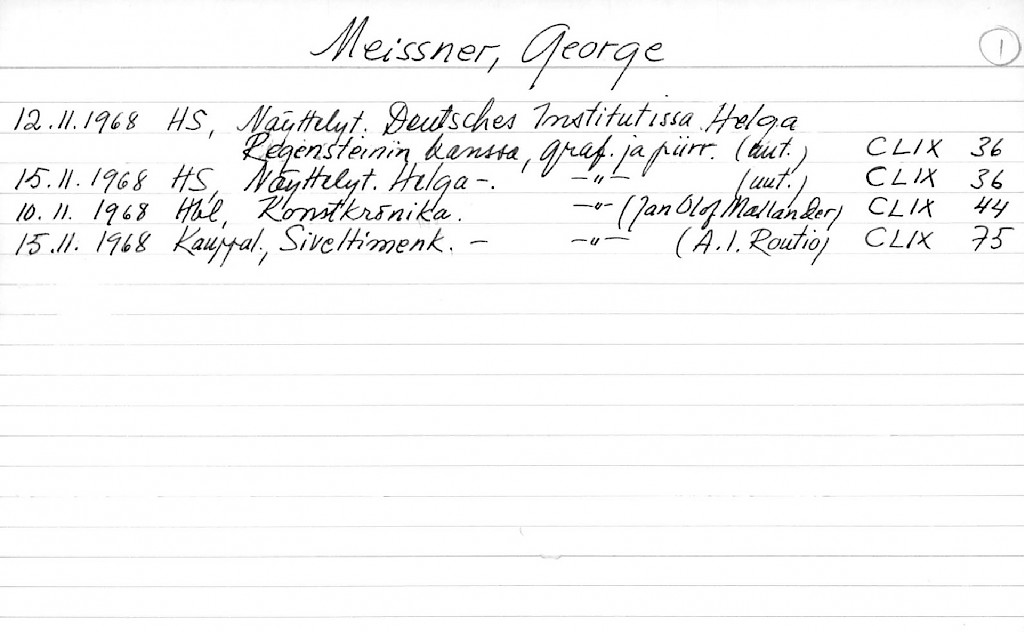 Meissner, George 1
12.11.1968 HS, Näyttelyt. Deutsches Institutissa Helga
Regensteinin kanssa, graf. ja piirr. (uut.) CLIX 36
15.11.1968 HS, Näyttelyt. Helga -. -"- (uut.) CLIX 36
10.11.1968 Hbl, Konstkrönika. -"- (Jan Olof Mallander) CLIX 44
15.11.1968 Kauppal., Siveltimenk. - -"- (A.I. Routio) CLIX 75